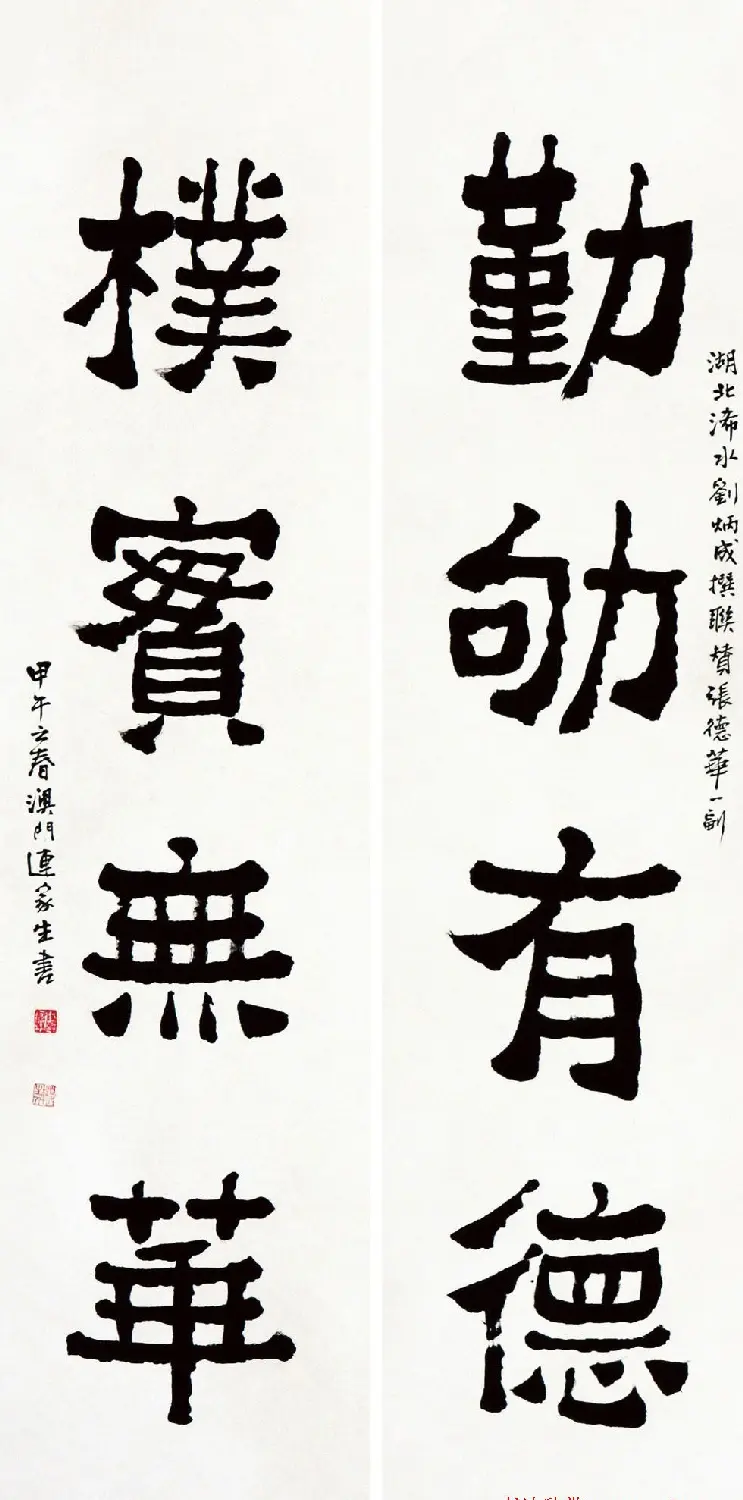 湖北浠水劉炳成撰聯贊張德華一副
勤劬有德
樸實無華
甲午之春澳門連家生書